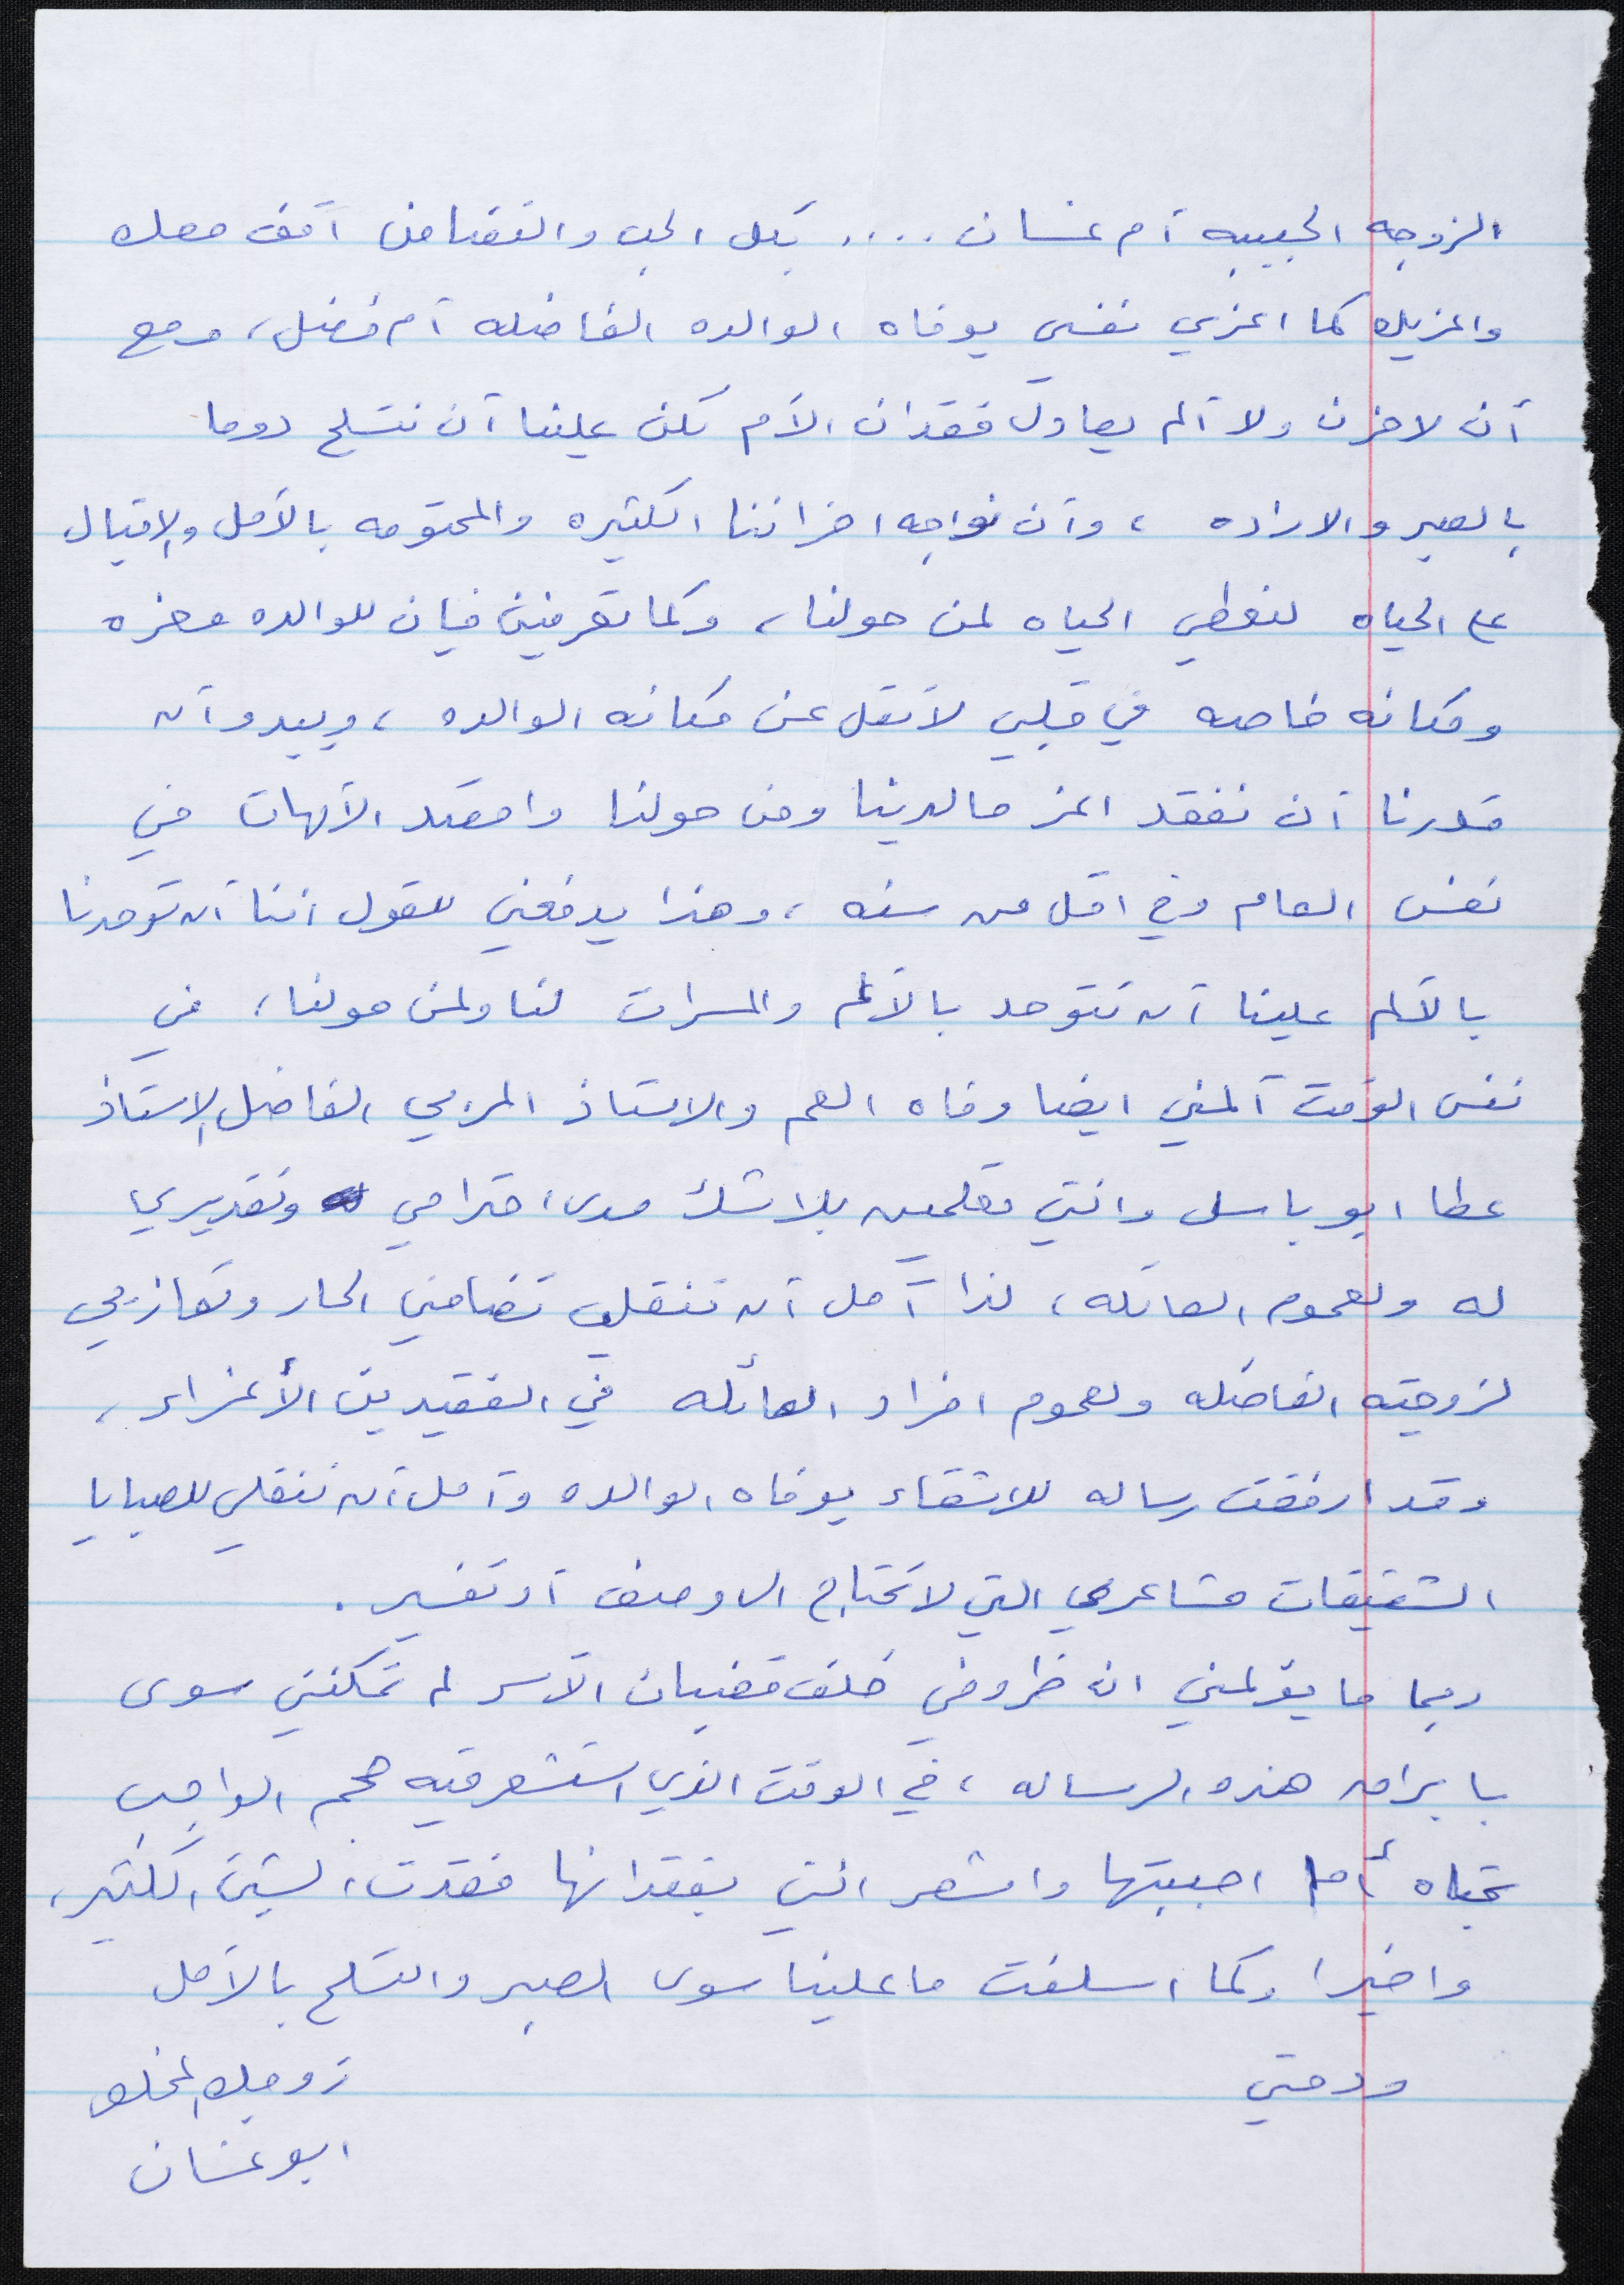 الزوجه الحبيبه أم غسان .... بكل الحب والتضامن أقف معك
واعزيك كما اعزي نفسي بوفاه الوالده الفاضله أم فضل، ومع
أن لا حزن ولا ألم يعادل فقدان الأم لكن علينا أن نتسلح دوما
بالصبر والاراده ، وأن نواجه احزاننا الكثيره والمحتومه بالأمل والاقبال
على الحياه لنعطي الحياه لمن حولنا، وكما تعرفين فإن للوالده معزه
ومكانه خاصه في قلبي لا تقل عن مكانه الوالده ، ويبدو أن
قدرنا أن نفقد اعز ما لدينا ومن حولنا وافتقد الأمهات في
نفس العام وفي اقل من سنه ، وهذا يدفعني للقول اننا أن توحدنا
بالألم علينا أن نتوحد بالألم والمسرات لنا ولمن حولنا، في
نفس الوقت آلمني ايضا وفاه العم والاستاذ المربي الفاضل الاستاذ
عطا ابو باسل وانتي تعلمين بلا شك مدى احترامي وتقديري
له ولعموم العائله ، لذا آمل أن تنقلي تضامني الحار وتعازيي
لزوجته الفاضله ولعموم افراد العائله في الفقيدين الأعزاء ،
وقد ارفقت رساله للاشقاء بوفاه الوالده وآمل أن تنقلي للصبايا
الشقيقات مشاعري التي لا تحتاج الى وصف أو تفسير .
ربما ما يؤلمني ان ظروفي خلف قضبان الأسر لم تمكنني سوى
بابراق هذه الرساله ، في الوقت الذي استشعر فيه حجم الواجب
تجاه أما احببتها واشعر انني بفقدانها فقدت الشيئ الكثير،
واخيرا وكما اسلفت ما علينا سوى الصبر والتسلح بالأمل
ودمتي
زوجك المخلص
ابو غسان